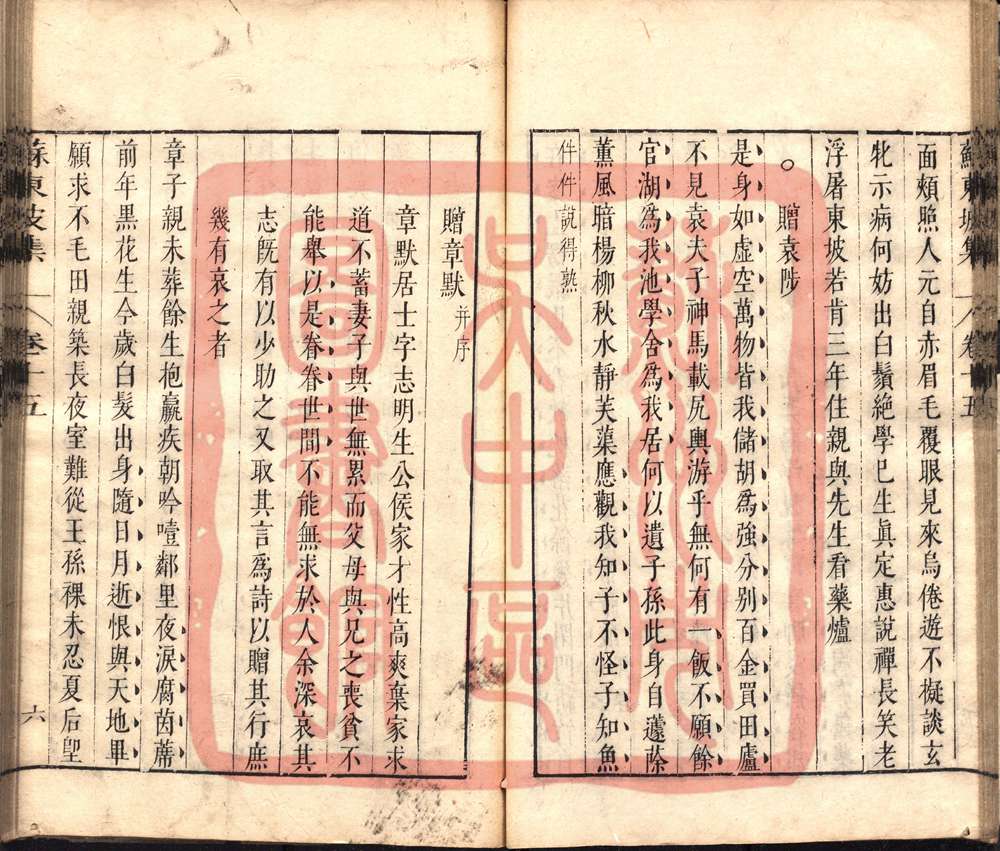 蘇東坡集 卷十五
面頰照人元自赤眉毛覆眼見來烏倦遊不擬談玄
牝示病何妨出白鬚絶學巳生真定惠說禪長笑老
浮屠東坡若肯三年住親與先生看藥爐
贈袁陟
是身如虛空萬物皆我儲胡為強分别百金買田廬
不見袁夫子神馬載尻輿游乎無何有一飯不願餘
官湖為我池學舍為我居何以遺子孫此身自蘧蒢
薰風暗楊柳秋水靜芙蕖應觀我知子不怪子知魚
件件說得熟
贈章默 并序
章默居士字志明生公侯家才性高爽棄家求
道不蓄妻子與世無累而父母與兄之喪貧不
能舉以是眷眷世間不能無求於人余深哀其
志旣有以少助之又取其言為詩以贈其行庶
幾有哀之者
章子親未葬餘生抱羸疾朝吟噎鄰里夜淚腐茵蓆
前年黑花生今歲白髮出身隨日月逝恨與天地畢
願求不毛田親築長夜室難從王孫裸未忍夏后堲
蘇東坡集 卷十五 六
蘇州市
吴中區
圖書館